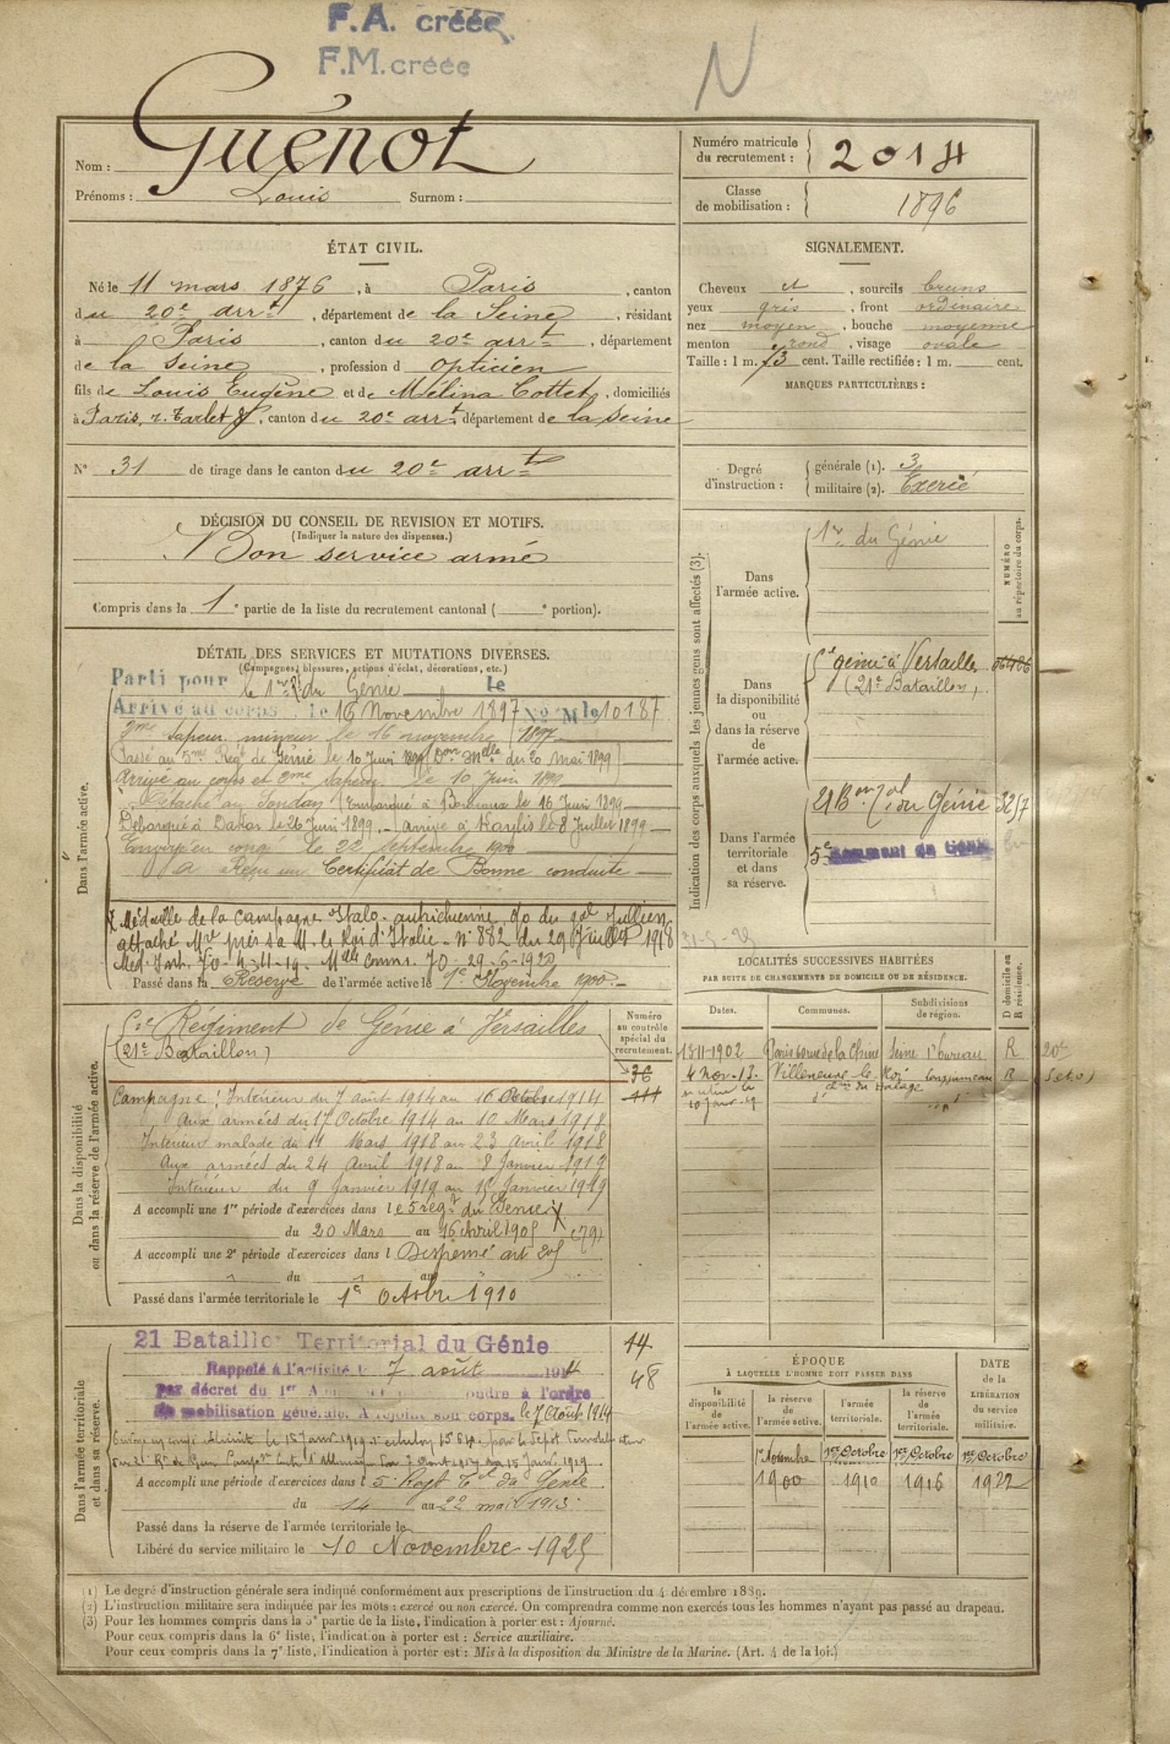 F.A. créée
F.M. créée
N
Nom : Guénot
Prénoms : Louis Surnom :
Numéro matricule du recrutement : 2014
Classe de mobilisation : 1896
ÉTAT CIVIL.
Né le 11 mars 1876, à Paris, canton
du 20e arrt, département de la Seine, résidant
à Paris, canton du 20e arrt, département
de la Seine, profession d opticien
fils de Louis Eugène et de Mélina Cottet, domiciliés
à Paris, r., canton du 20e arrt, département de la Seine
N° 31 de tirage dans le canton du 20e arrt
SIGNALEMENT.
Cheveux et, sourcils bruns
yeux gris, front ordinaire
nez moyen, bouche moyenne
menton rond, visage ovale
Taille : 1 m. 73 cent. Taille rectifiée : 1 m. cent.
MARQUES PARTICULIÈRES :
Degré d'instruction : générale (1). 3
militaire (2). Exercé
DÉCISION DU CONSEIL DE REVISION ET MOTIFS.
(Indiquer la nature des dispenses.)
Bon service armé
Compris dans la 1e partie de la liste du recrutement cantonal ( e portion).
Indication des corps auxquels les jeunes gens sont affectés (3).
NUMÉRO au répertoire du corps.
Dans l'armée active. 1er du Génie
Dans la disponibilité ou dans la réserve de l'armée active. génie à Versailles
(21e Bataillon)
Dans l'armée territoriale et dans sa réserve. 21 Bon du Génie 3257
5e du Génie
DÉTAIL DES SERVICES ET MUTATIONS DIVERSES.
(Campagnes, blessures, actions d'éclat, décorations, etc.)
Dans l'armée active.
Parti pour le 1er Rt du Génie le
Arrivé au corps le 16 Novembre 1897 No Mle 10187
2me sapeur mineur le 16 novembre 1897
Passé au 5me Régt de Génie le 10 Juin 1899 (Don Melle du 20 mai 1899)
Arrivé au corps et 2me sapeur le 10 Juin 1899
Détaché au Soudan (Embarqué à Bordeaux le 16 Juin 1899
Débarqué à Dakar le 26 Juin 1899. arrivé à Kayes le 8 Juillet 1899
Envoyé en congé le 22 septembre 1900
a Reçu un Certificat de Bonne conduite
X Médaille de la campagne Italo-autrichienne, do du gal Jullien
attaché Mre près sa M. le Roi d'Italie - No 882 du 29 Juillet 1918
Passé dans la Réserve de l'armée active le 1er Novembre 1900
LOCALITÉS SUCCESSIVES HABITÉES
PAR SUITE DE CHANGEMENTS DE DOMICILE OU DE RÉSIDENCE.
Dates. Communes. Subdivisions de région. D domicile ou R résidence.
13-11-1902 Paris 60 rue de la Chine Seine 1er bureau R 20e
4 Nov. 13. Villeneuve le Roi R (S et O)
Dans la disponibilité ou dans la réserve de l'armée active.
Numéro au contrôle spécial du recrutement.
Régiment de Génie à Versailles
(21e Bataillon)
36
111
Campagne : Intérieur du 7 août 1914 au 16 Octobre 1914
Aux armées du 17 Octobre 1914 au 10 Mars 1918
Intérieur malade du 11 Mars 1918 au 23 Avril 1918
Aux armées du 24 Avril 1918 au 8 Janvier 1919
Intérieur du 9 Janvier 1919 au 15 Janvier 1919
A accompli une 1re période d'exercices dans le 5 régt du Génie X
du 20 Mars au 16 Avril 1905
A accompli une 2e période d'exercices dans l Dispensé art 205
du au
Passé dans l'armée territoriale le 1er Octobre 1910
Dans l'armée territoriale et dans sa réserve.
21 Bataillon Territorial du Génie
Rappelé à l'activité le 7 août 1914
par décret du 1er à l'ordre
de mobilisation générale. A rejoint son corps. le 7 Août 1914
14
48
A accompli une période d'exercices dans l 5 Regt du Génie
du 14 au 22 mai 1913
Passé dans la réserve de l'armée territoriale le
Libéré du service militaire le 10 Novembre 1925
ÉPOQUE
À LAQUELLE L'HOMME DOIT PASSER DANS
DATE DE LA LIBÉRATION DU SERVICE MILITAIRE.
la disponibilité de l'armée active. la réserve de l'armée active. l'armée territoriale. la réserve de l'armée territoriale.
1er Novembre 1er Octobre 1er Octobre 1er Octobre
1900 1910 1916 1922
(1) Le degré d'instruction générale sera indiqué conformément aux prescriptions de l'instruction du 4 décembre 1889.
(2) L'instruction militaire sera indiquée par les mots : exercé ou non exercé. On comprendra comme non exercés tous les hommes n'ayant pas passé au drapeau.
(3) Pour les hommes compris dans la 5e partie de la liste, l'indication à porter est : Ajourné.
Pour ceux compris dans la 6e liste, l'indication à porter est : Service auxiliaire.
Pour ceux compris dans la 7e liste, l'indication à porter est : Mis à la disposition du Ministre de la Marine. (Art. 4 de la loi.)